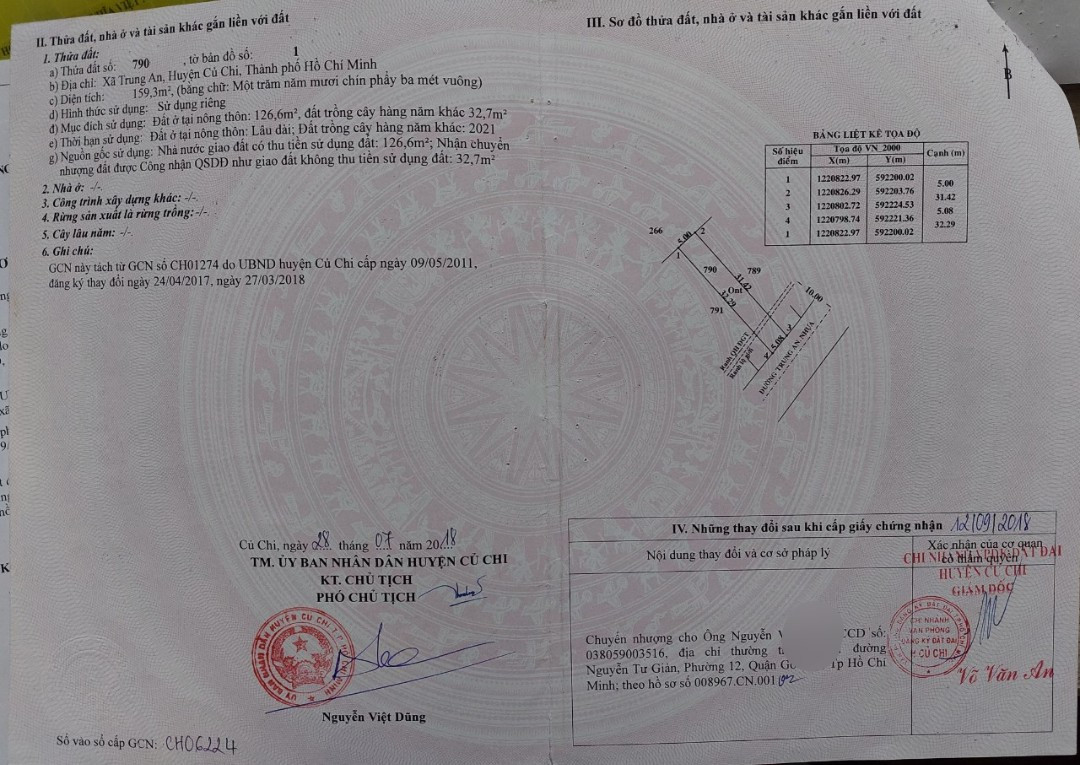 II. Thửa đất, nhà ở và tài sản khác gắn liền với đất
1. Thửa đất:
a) Thửa đất số: 790 , tờ bản đồ số: 1
b) Địa chỉ: Xã Trung An, Huyện Củ Chi, Thành phố Hồ Chí Minh
c) Diện tích: 159,3m², (bằng chữ: Một trăm năm mươi chín phẩy ba mét vuông)
d) Hình thức sử dụng: Sử dụng riêng
đ) Mục đích sử dụng: Đất ở tại nông thôn: 126,6m², đất trồng cây hàng năm khác 32,7m²
e) Thời hạn sử dụng: Đất ở tại nông thôn: Lâu dài; Đất trồng cây hàng năm khác: 2021
g) Nguồn gốc sử dụng: Nhà nước giao đất có thu tiền sử dụng đất: 126,6m²; Nhận chuyển
nhượng đất được Công nhận QSDĐ như giao đất không thu tiền sử dụng đất: 32,7m²
2. Nhà ở: -/-.
3. Công trình xây dựng khác: -/-.
4. Rừng sản xuất là rừng trồng:-/-.
5. Cây lâu năm: -/-.
6. Ghi chú:
GCN này tách từ GCN số CH01274 do UBND huyện Củ Chi cấp ngày 09/05/2011,
đăng ký thay đổi ngày 24/04/2017, ngày 27/03/2018
Củ Chi, ngày 28 tháng 07 năm 2018
TM. ỦY BAN NHÂN DÂN HUYỆN CỦ CHI
KT. CHỦ TỊCH
PHÓ CHỦ TỊCH
ỦY BAN NHÂN DÂN HUYỆN CỦ CHI T.P HỒ CHÍ MINH
Nguyễn Việt Dũng
Số vào sổ cấp GCN: CH06224
III. Sơ đồ thửa đất, nhà ở và tài sản khác gắn liền với đất
B
BẢNG LIỆT KÊ TỌA ĐỘ
Số hiệu điểm Tọa độ VN_2000 Cạnh (m)
X(m) Y(m)
1 1220822.97 592200.02
5.00
2 1220826.29 592203.76
31.42
3 1220802.72 592224.53
5.08
4 1220798.74 592221.36
32.29
1 1220822.97 592200.02
266
5.00
2
1
790
789
31.42
Ont
32.29
791
10.00
3
5.08
4
Ranh QH ĐGT
Ranh lộ giới
ĐƯỜNG TRUNG AN, NHỰA
IV. Những thay đổi sau khi cấp giấy chứng nhận 12/09/2018
Nội dung thay đổi và cơ sở pháp lý
Xác nhận của cơ quan
có thẩm quyền
CHI NHÁNH VPĐK ĐẤT ĐAI
HUYỆN CỦ CHI
GIÁM ĐỐC
Chuyển nhượng cho Ông Nguyễn V CCD số:
038059003516, địa chỉ thường t đường
Nguyễn Tư Giản, Phường 12, Quận G Tp Hồ Chí
Minh; theo hồ sơ số 008967.CN.001
CHI NHÁNH
VĂN PHÒNG
ĐĂNG KÝ ĐẤT ĐAI
H CỦ CHI
Võ Văn An